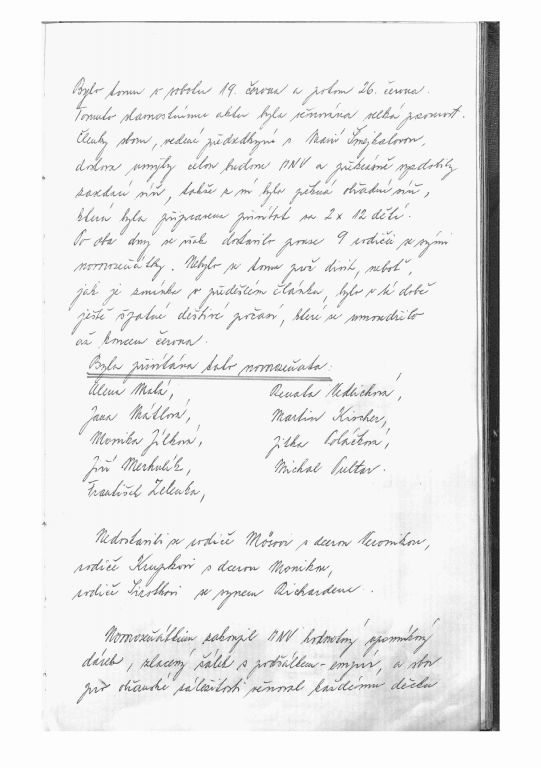 Bylo tomu v sobotu 19. června a potom 26. června.
Tomuto slavnostnímu aktu byla věnována velká pozornost.
Členky sboru, vedené předsedkyní s. Marií Smejkalovou,
doslova umyly celou budovu MNV a překrásně vyzdobily
zasedací síň, takže z ní byla pěkná obřadní síň,
která byla připravena přivítat na 2 x 12 dětí.
Po oba dny se však dostavilo pouze 9 rodičů se svými
novorozeňátky. Nebylo se tomu proč divit, neboť,
jak je zmínka v předešlém článku, bylo v té době
ještě špatné deštivé počasí, které se umoudřilo
až koncem června.
Byla přivítána tato novorozeňata:
Alena Malá, Renata Nedlichová,
Jana Mátlová, Martin Kircher,
Monika Jílková, Jitka Koláčková,
Jiří Merhulík, Michal Pultar.
František Zelenka,
Nedostavili se rodiče Móovi s dcerou Veronikou,
rodiče Krupkovi s dcerou Monikou,
rodiče se synem Richardem.
Novorozeňátkům zakoupil MNV hodnotný upomínkový
dárek, zlacený šálek s podšálkem - empír, a sbor
pro občanské záležitosti věnoval každému děcku